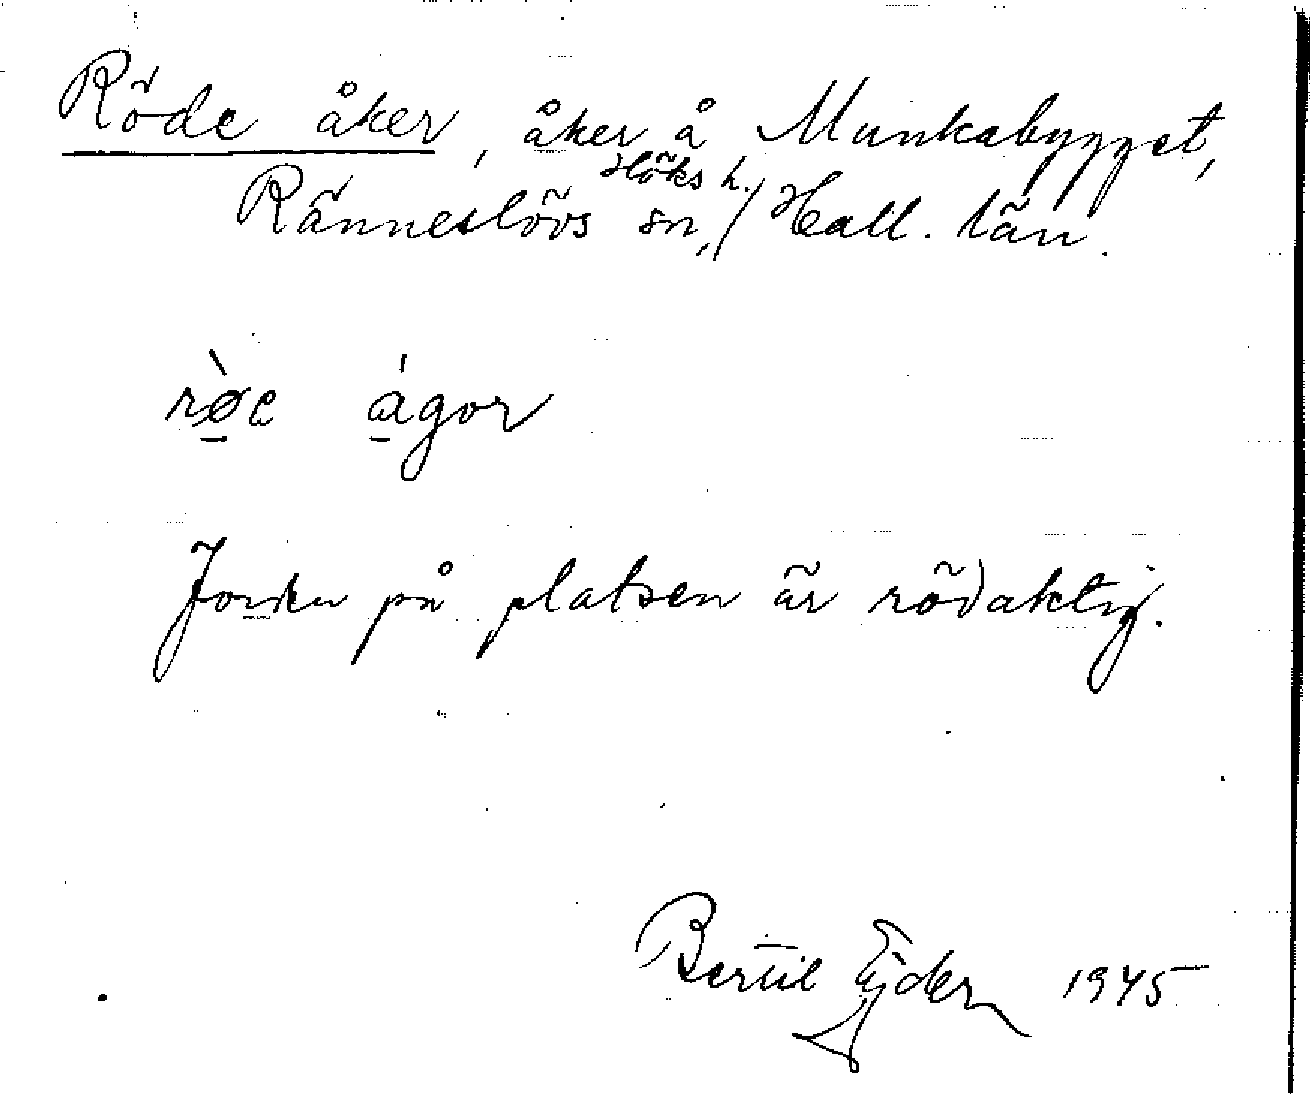 Röde åker, åker å Munkabygget,
Ränneslövs sn, Höks h. / Hall. län.
rø̠̀e á̠gor
Jorden på platsen är rödaktig.
Bertil Ejder 1945